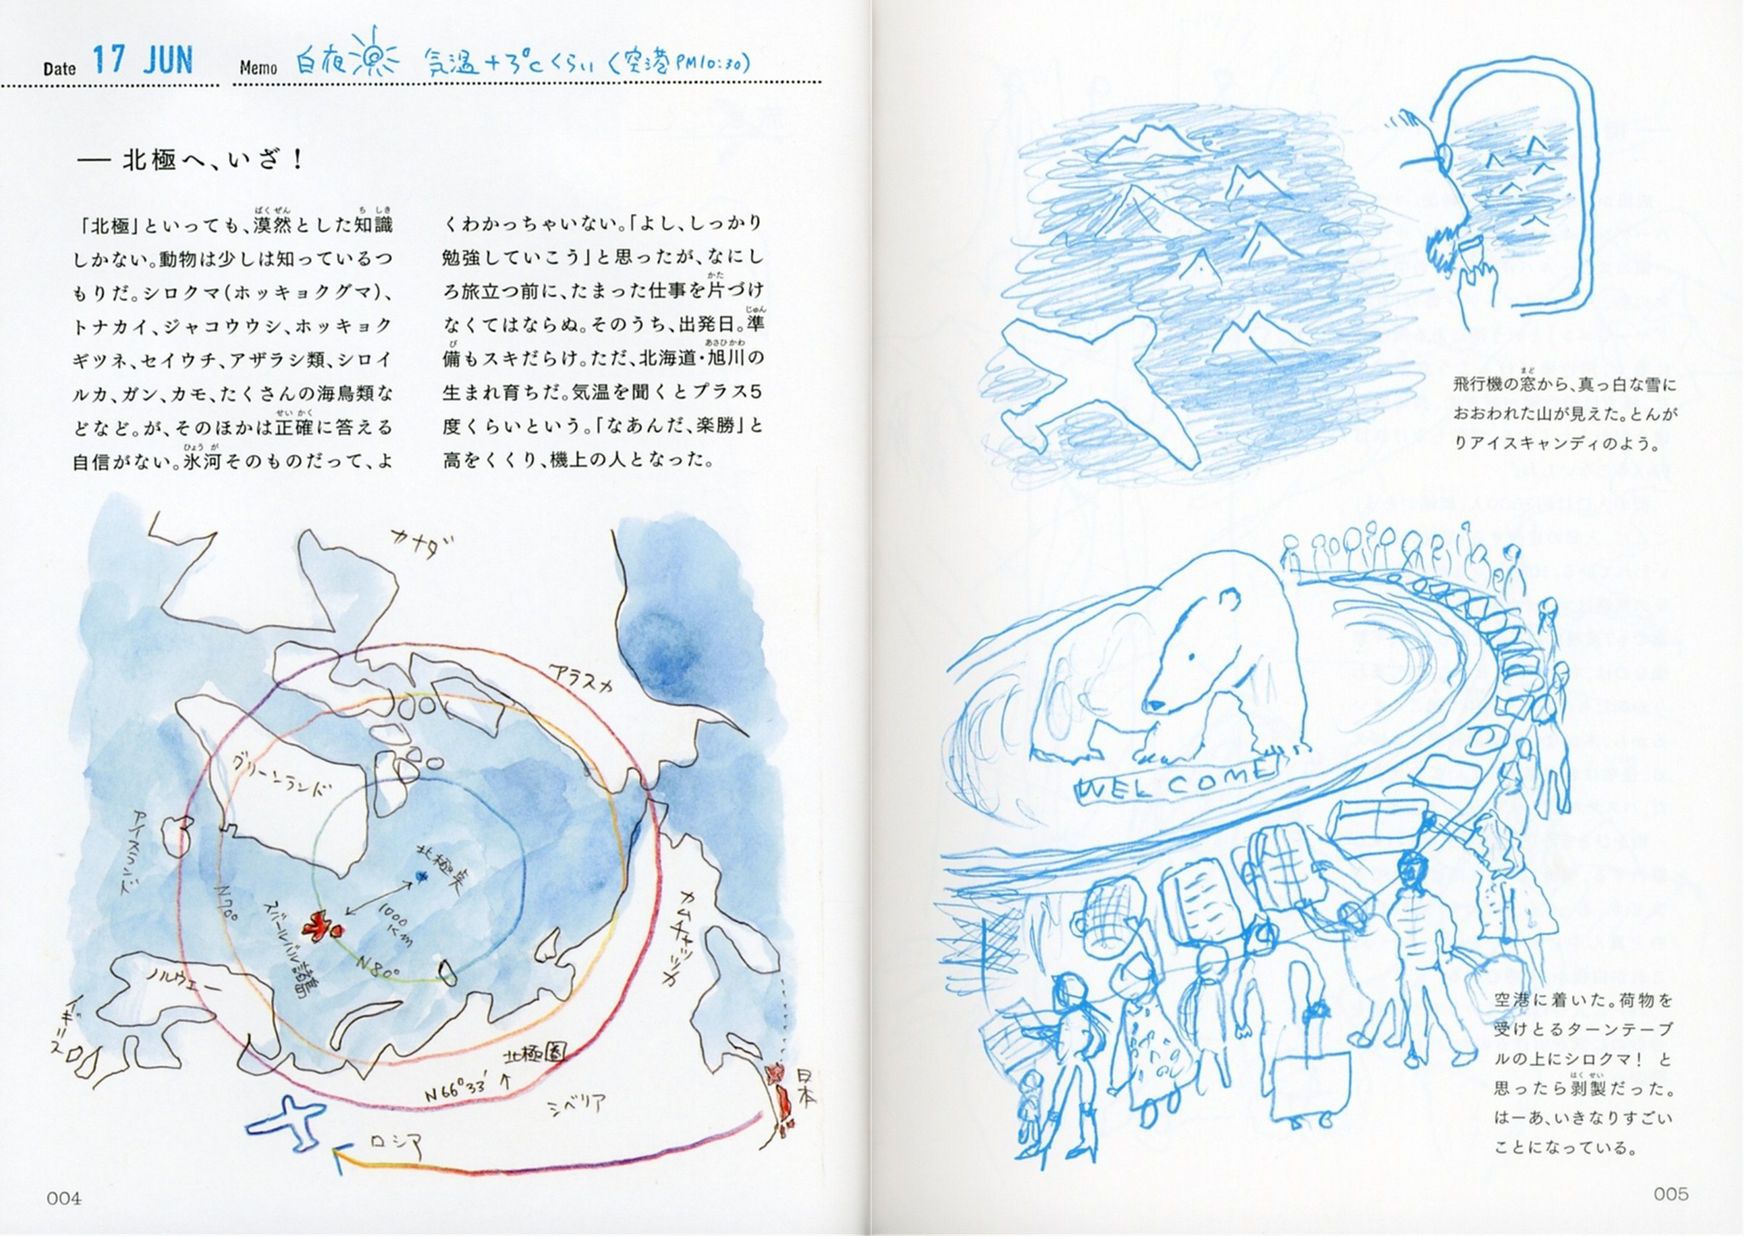 Date 17 JUN Memo 白夜 気温+3℃くらい(空港PM10:30)
― 北極へ、いざ！
「北極」といっても、漠然とした知識
しかない。動物は少しは知っているつ
もりだ。シロクマ(ホッキョクグマ)、
トナカイ、ジャコウウシ、ホッキョク
ギツネ、セイウチ、アザラシ類、シロイ
ルカ、ガン、カモ、たくさんの海鳥類な
どなど。が、そのほかは正確に答える
自信がない。氷河そのものだって、よ
くわかっちゃいない。「よし、しっかり
勉強していこう」と思ったが、なにし
ろ旅立つ前に、たまった仕事を片づけ
なくてはならぬ。そのうち、出発日。準
備もスキだらけ。ただ、北海道・旭川の
生まれ育ちだ。気温を聞くとプラス5
度くらいという。「なあんだ、楽勝」と
高をくくり、機上の人となった。
カナダ
アラスカ
グリーンランド
アイスランド
北極点
1000km
N70°
スバールバル諸島
N80°
カムチャッカ
ノルウェー
イギリス
北極圏
N66°33′
シベリア
日本
ロシア
004
飛行機の窓から、真っ白な雪に
おおわれた山が見えた。とんが
りアイスキャンディのよう。
WELCOME
空港に着いた。荷物を
受けとるターンテーブ
ルの上にシロクマ！ と
思ったら剥製だった。
はーあ、いきなりすごい
ことになっている。
005